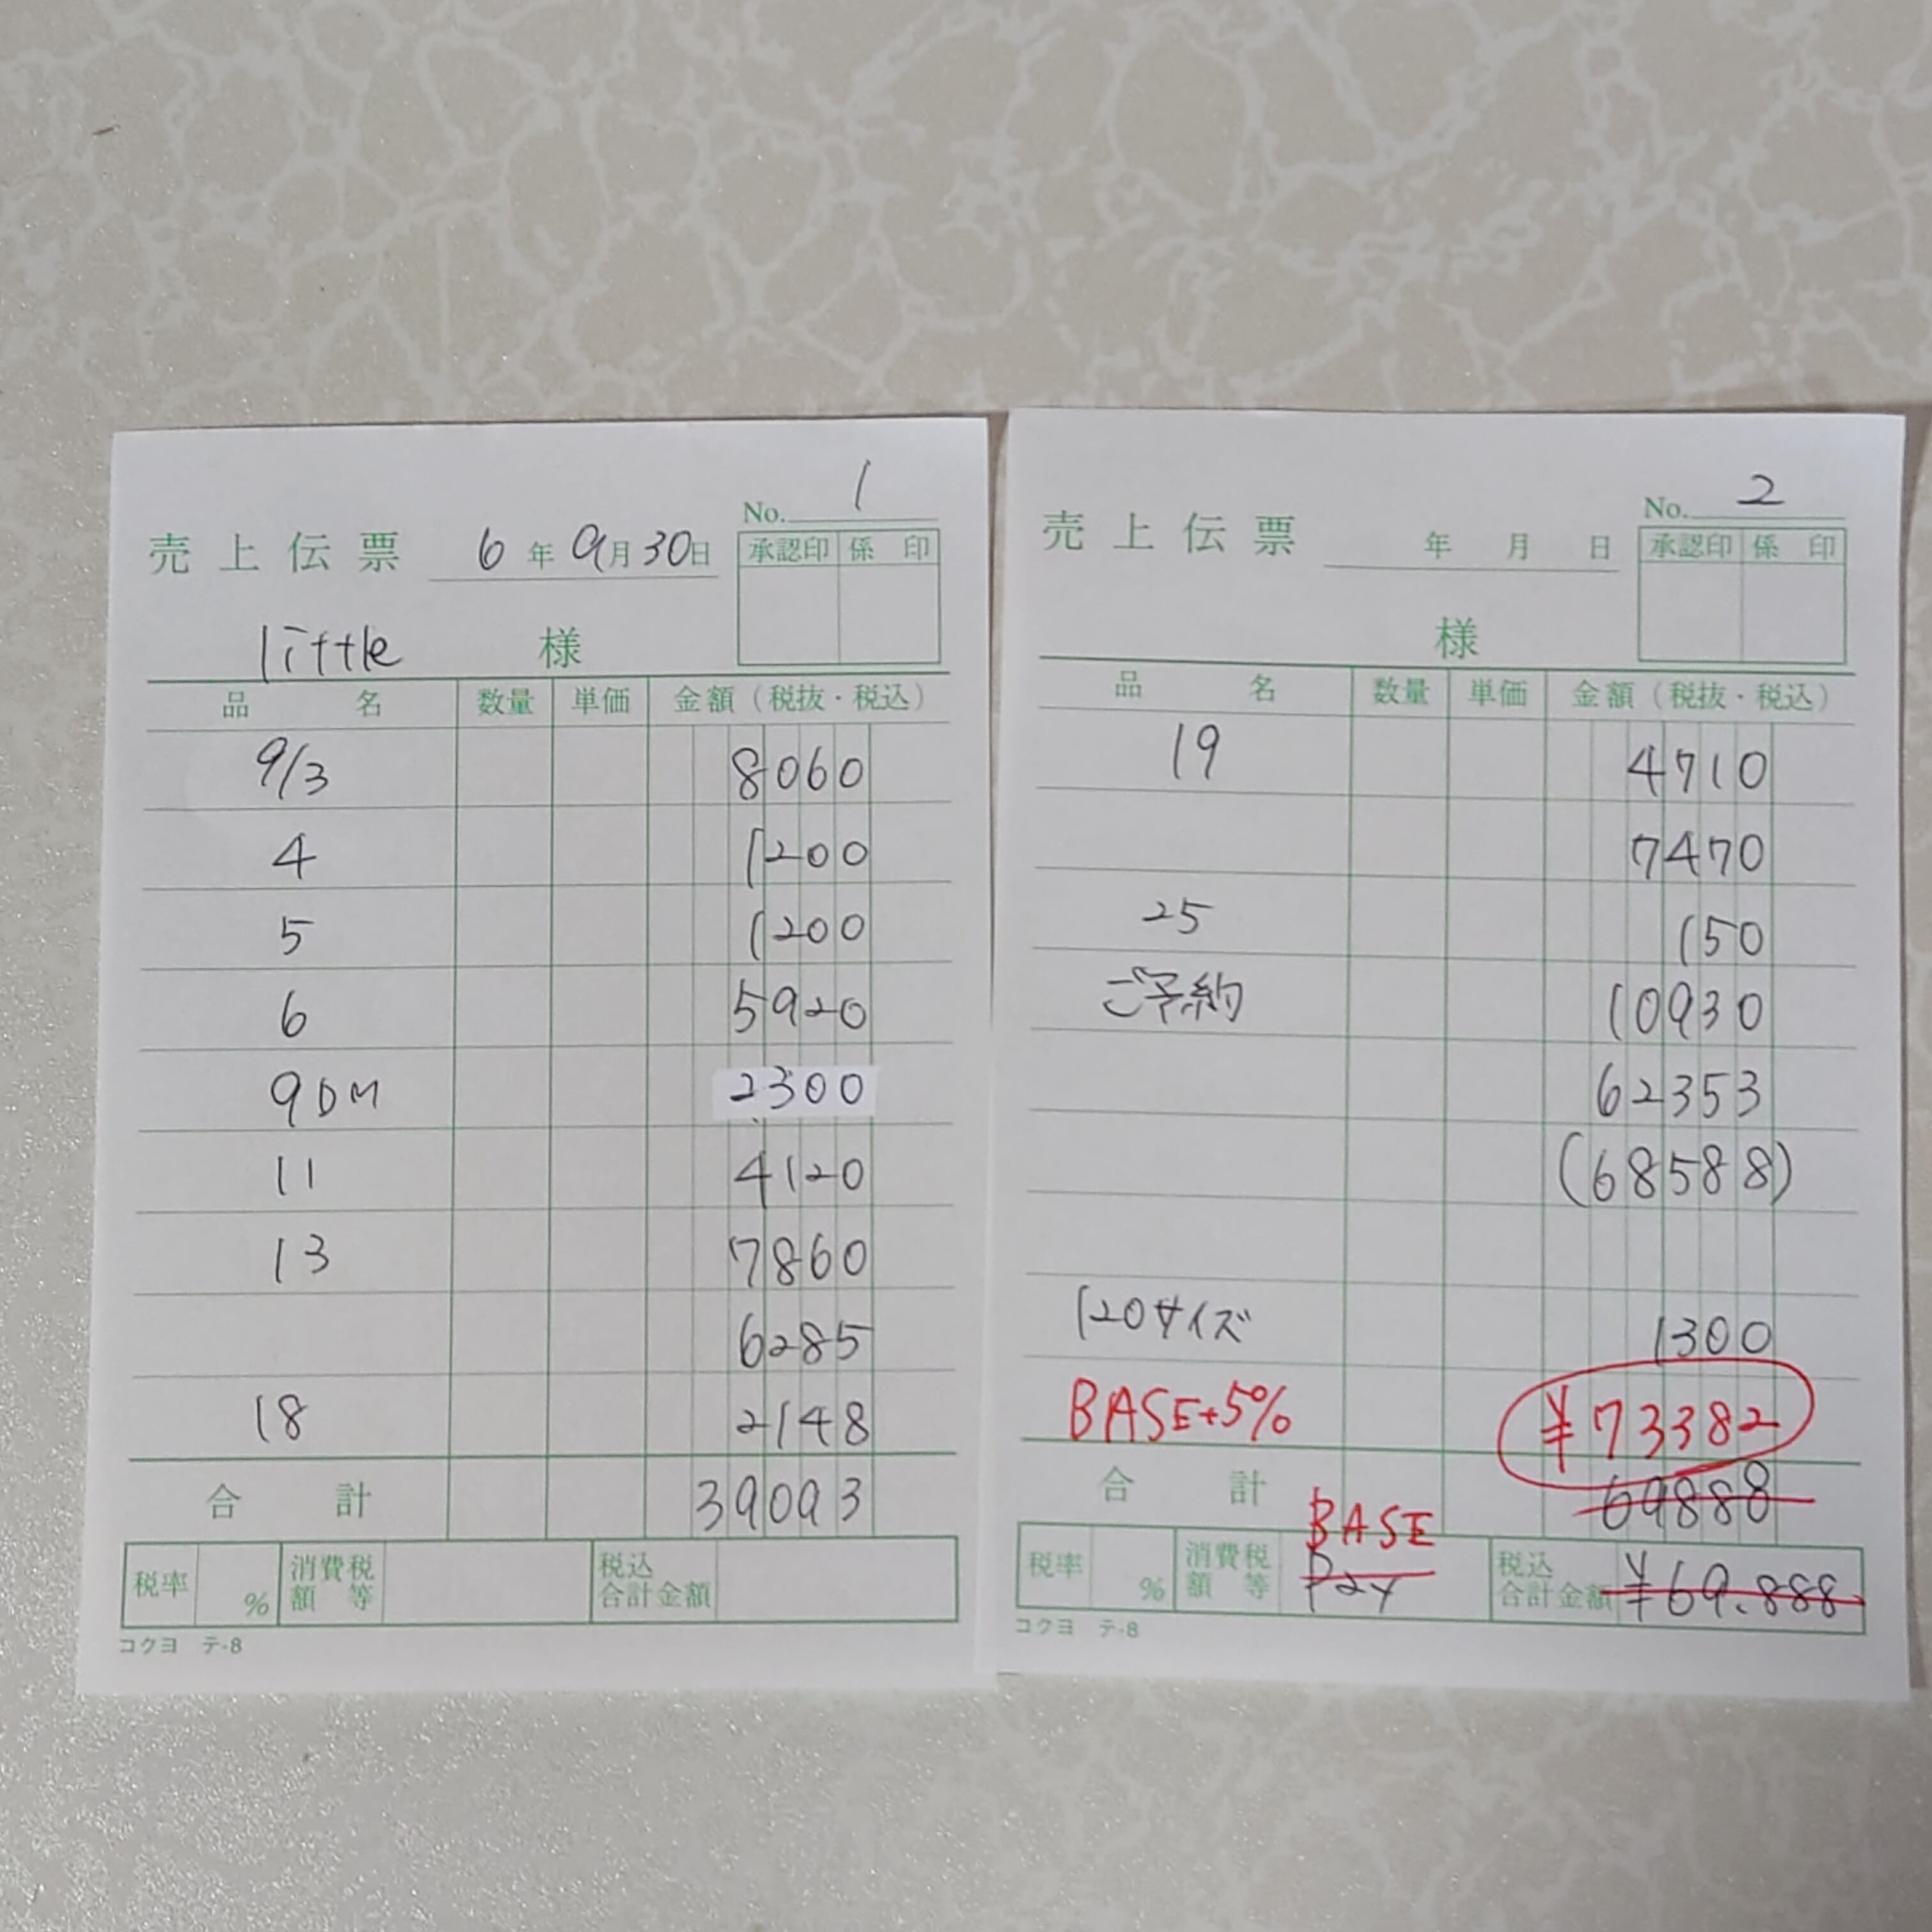 No. 1
売上伝票 6年9月30日
承認印 係印
little 様
品名 数量 単価 金額(税抜・税込)
9/3 8060
4 1200
5 1200
6 5920
9DM 2300
11 4120
13 7860
6285
18 2148
合計 39093
税率 % 消費税額等 税込合計金額
コクヨ テ-8
No. 2
売上伝票 年 月 日
承認印 係印
様
品名 数量 単価 金額(税抜・税込)
19 4710
7470
25 150
ご予約 10930
62353
(68588)
120サイズ 1300
BASE+5% ¥73382
合計 69888
BASE
税率 % 消費税額等 Pay 税込合計金額 ¥69.888
コクヨ テ-8